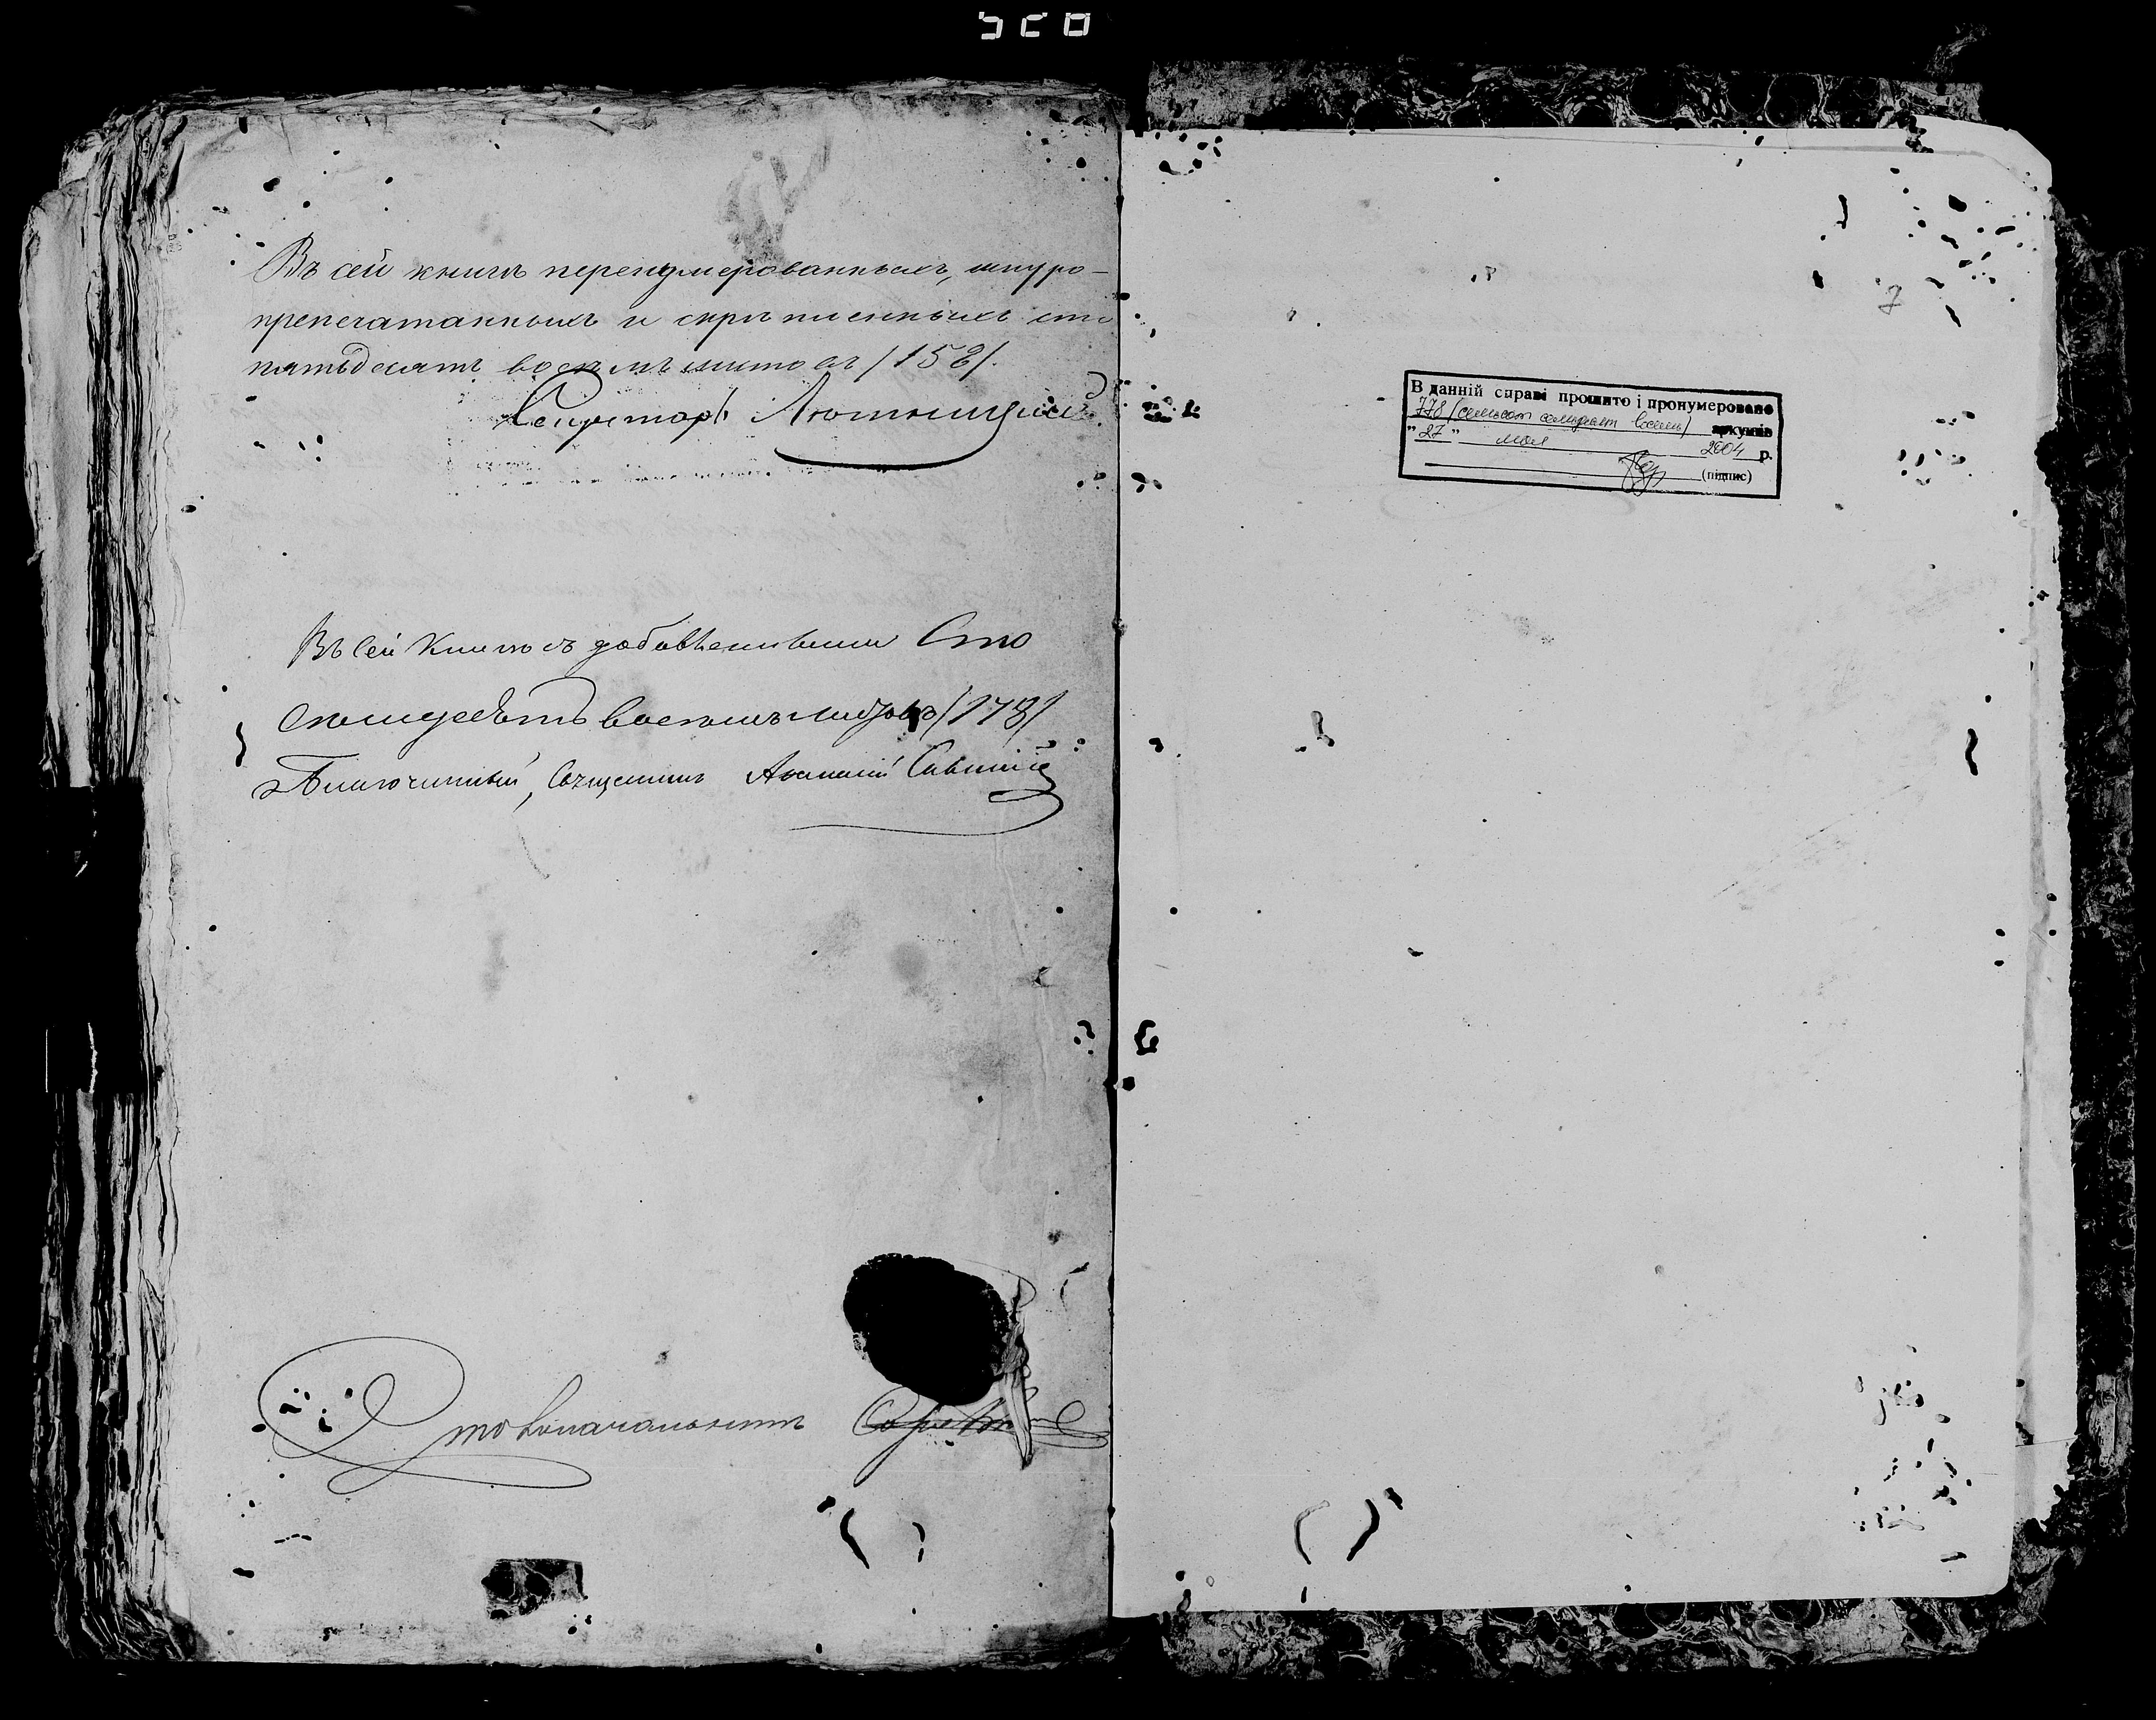 Въ сей книгѣ перенумерованныхъ, шнуро-
препечатанныхъ и скрѣпленныхъ сто
пятьдесятъ восемь листовъ /158/.
Секретарь
Въ сей книгѣ съ добавленными Сто
семьдесятъ восемь листовъ /178/
Благочинный, Священникъ Ананій Савицкій
Столоначальникъ
7
В данній справі прошито і пронумеровано
778 (семьсот семьдесят восемь) аркушів
"27" мая 2004 р.
(підпис)